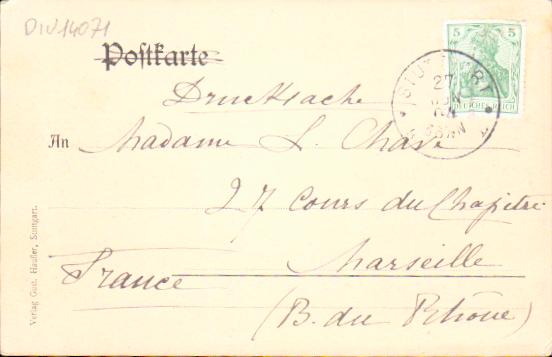 DIV14071
Postkarte
5 5
DEUTSCHES REICH
STUTTGART
27
JUN
04
Drucksache
An Madame L. Chave
27 Cours du Chapitre
Marseille
France
(B. du Rhône)
Verlag Gust. Haufler, Stuttgart.